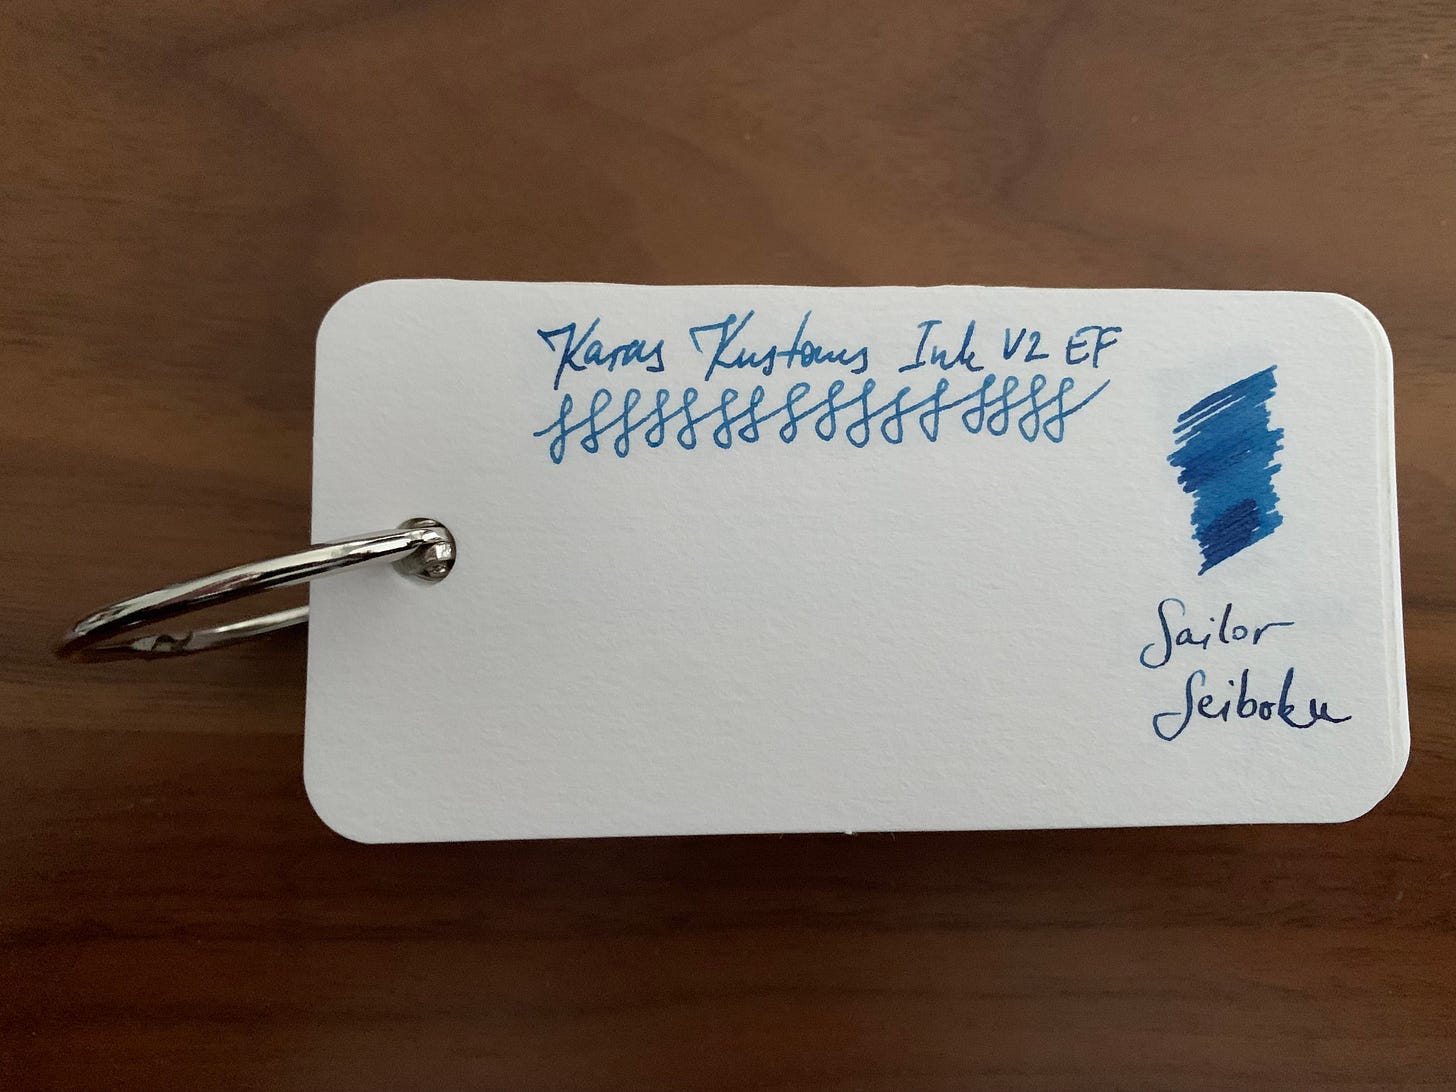 Karas Kustoms Ink V2 EF
Sailor
Seiboku